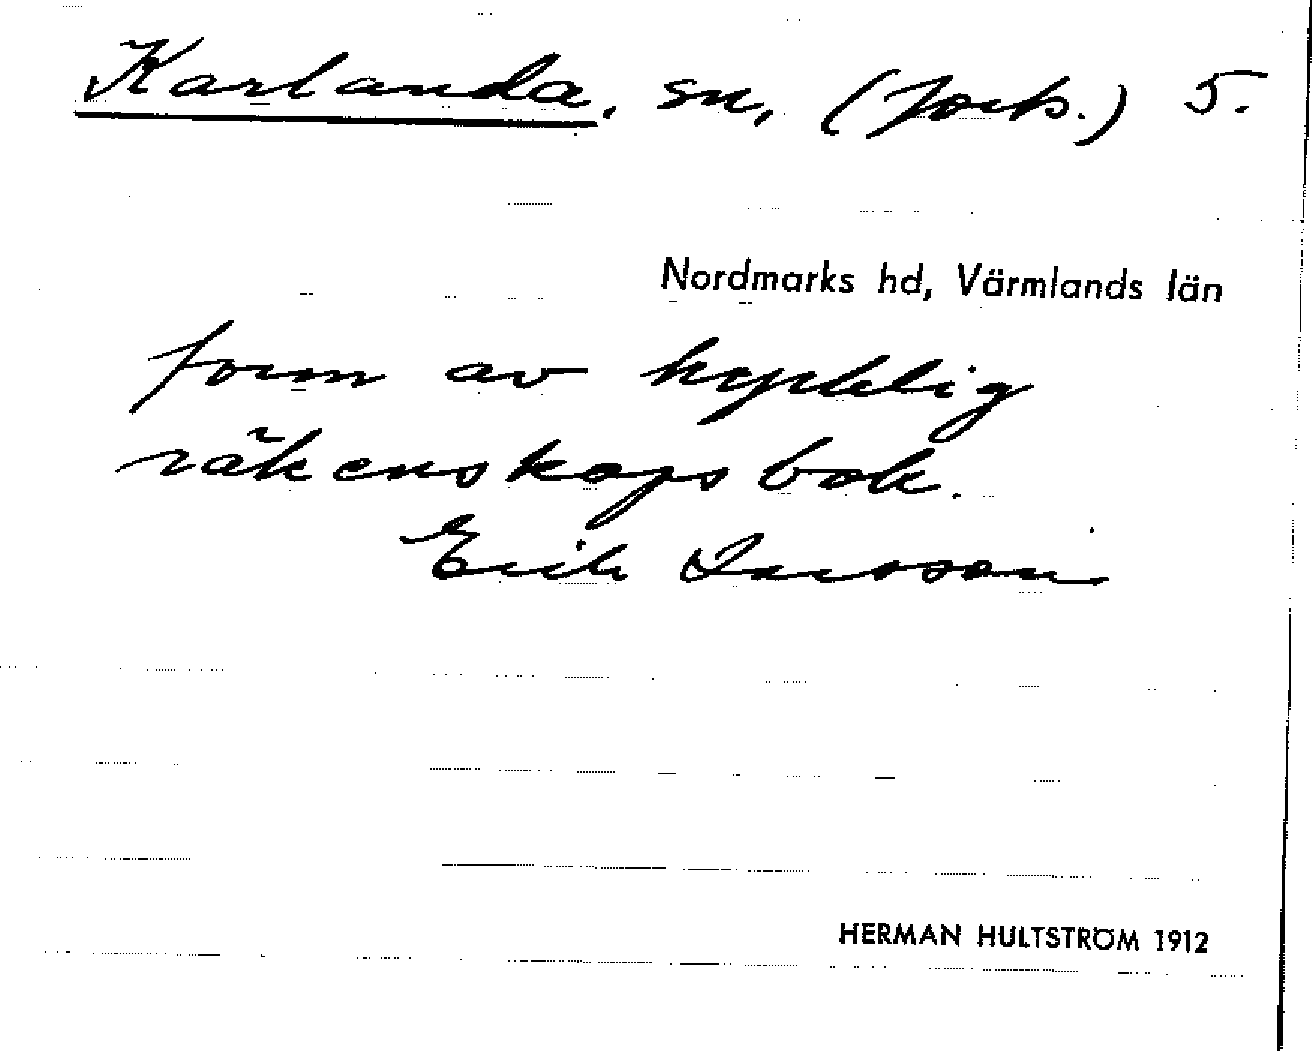 Karlanda, sn, (forts.) 5.
Nordmarks hd, Värmlands län
form av kyrklig
räkenskapsbok.
Erik Larsson
HERMAN HULTSTRÖM 1912